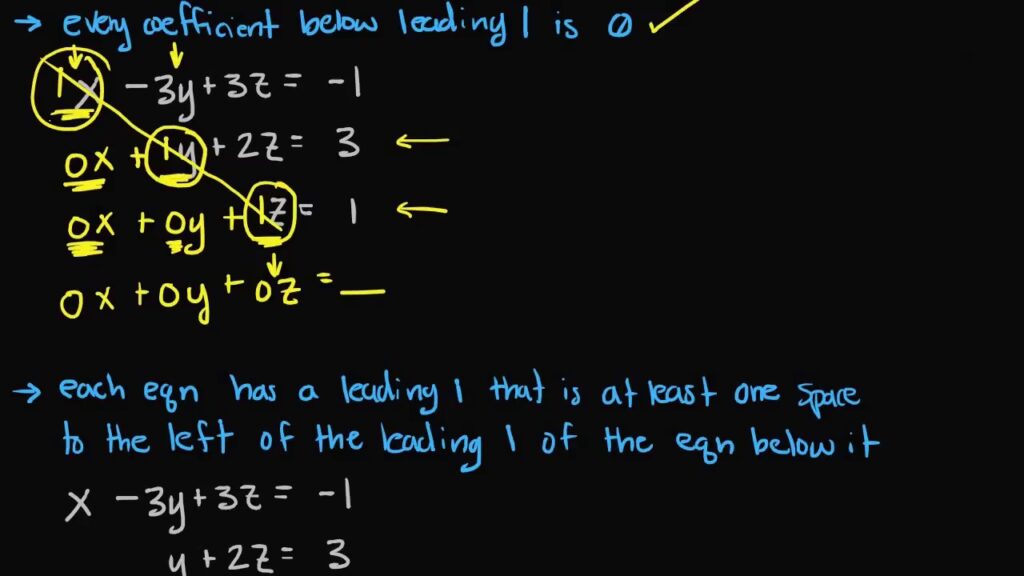 → every coefficient below leading 1 is 0 ✓
1x - 3y + 3z = -1
0x + 1y + 2z = 3 ←
0x + 0y + 1z = 1 ←
0x + 0y + 0z = __
→ each eqn has a leading 1 that is at least one space
to the left of the leading 1 of the eqn below it
x - 3y + 3z = -1
y + 2z = 3